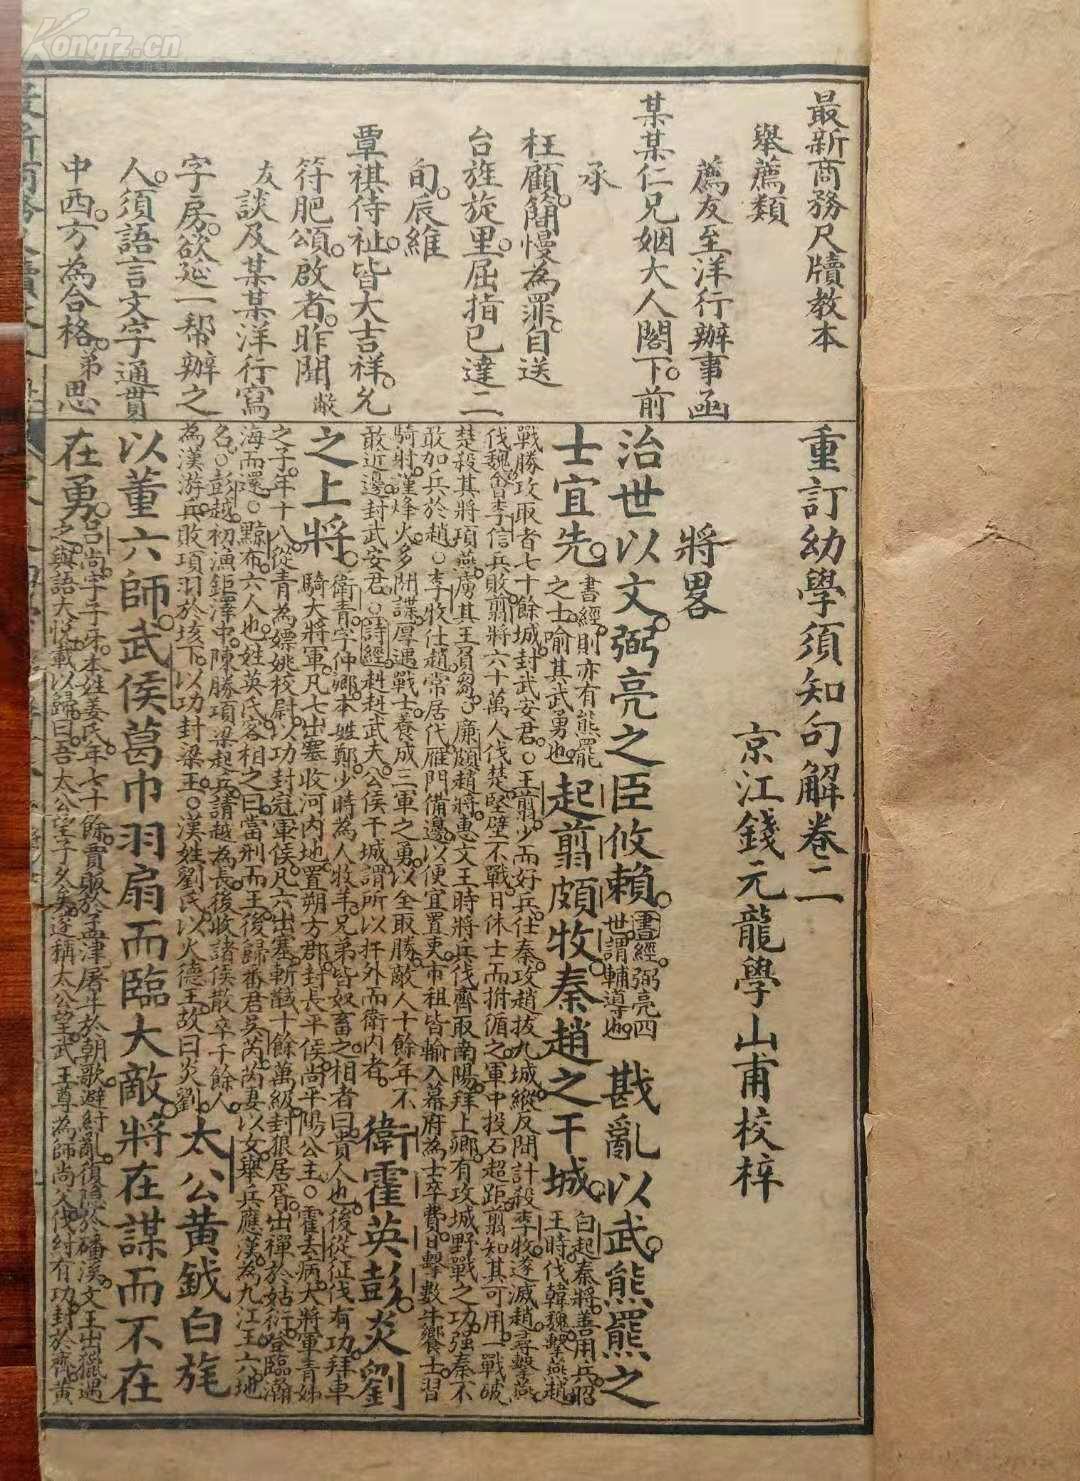 最新商務尺牘教本
舉薦類
薦友至洋行辦事函
某某仁兄姻大人閣下。前
承
枉顧。簡慢為罪。自送
台旌旋里。屈指已達二
旬。辰維
覃祺侍祉。皆大吉祥。允
符肥頌。啟者。昨聞敝
友談及某某洋行寫
字房。欲延一幫辦之
人。須語言文字通貫
中西。方為合格。弟思
重訂幼學須知句解卷二
京江錢元龍學山甫校梓
將畧
治世以文。弼亮之臣攸賴。書經弼亮四世謂輔導也 戡亂以武。熊羆之
士宜先。書經則亦有熊羆之士喻其武勇也 起翦頗牧。秦趙之干城。白起秦將善用兵昭王時伐韓魏擊燕趙
戰勝攻取者七十餘城封武安君。○王翦少而好兵仕秦攻趙拔九城縱反間計殺李牧遂滅趙尋擊燕
伐魏會李信兵敗翦將六十萬人伐楚堅壁不戰日休士而拊循之軍中投石超距翦知其可用一戰破
楚殺其將項燕虜其王負芻。廉頗趙將惠文王時將兵伐齊取南陽拜上卿有攻城野戰之功強秦不
敢加兵於趙。李牧仕趙常居代雁門備邊以便宜置吏市租皆輸入幕府為士卒費日擊數牛饗士習
騎射謹烽火多閒諜厚遇戰士養成三軍之勇以全取勝敵人十餘年不
敢近邊封武安君。○詩經赳赳武夫公侯干城謂所以扞外而衛內者。 衛霍英彭。炎劉
之上將。衛青字仲卿本姓鄭少時為人牧羊兄弟皆奴畜之相者曰貴人也後從征伐有功拜車
騎大將軍凡七出塞收河內地置朔方郡封長平侯尚平陽公主。○霍去病大將軍青姊
之子年十八從青為嫖姚校尉以功封冠軍侯凡六出塞斬馘十餘萬級封狼居胥出禪於姑衍登臨瀚
海而還。○黥布六人也姓英氏客相之曰當刑而王後歸番君吳芮芮妻以女舉兵應漢為九江王六地
名。○彭越初漁鉅澤中陳勝項梁起兵請越為長後收諸侯散卒千餘人
為漢游兵敗項羽於垓下以功封梁王。○漢姓劉氏以火德王故曰炎劉 太公黃鉞白旄
以董六師。武侯葛巾羽扇而臨大敵。將在謀而不在
在勇。呂尚字子牙本姓姜氏年七十餘賣販於孟津屠牛於朝歌避紂亂復隱於磻溪文王出獵遇
之與語大悅載以歸曰吾太公望子久矣遂稱太公望武王尊為師尚父伐紂有功封於齊黃
Kongfz.cn